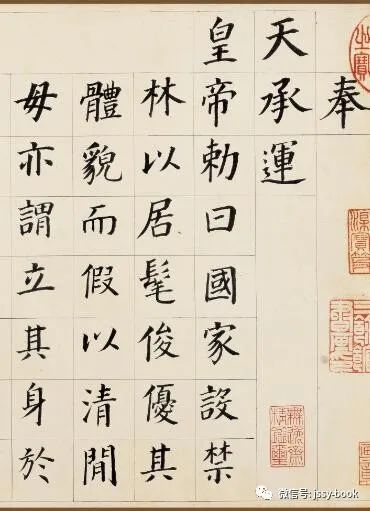 奉
天承運
皇帝勅曰國家設禁
林以居髦俊優其
體貌而假以清閒
毋亦謂立其身於
微信号: jssy-book